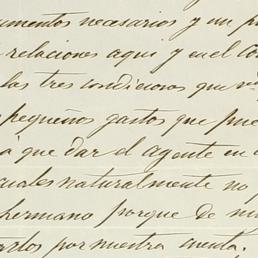 umentos necesarios y un p
relaciones aqui y en el Co
las tres condiciones que
pequeños gastos que pue
á que dar el agente en
cuales naturalmente no p
hermano porque de m
tarlos por nuestra cuenta.